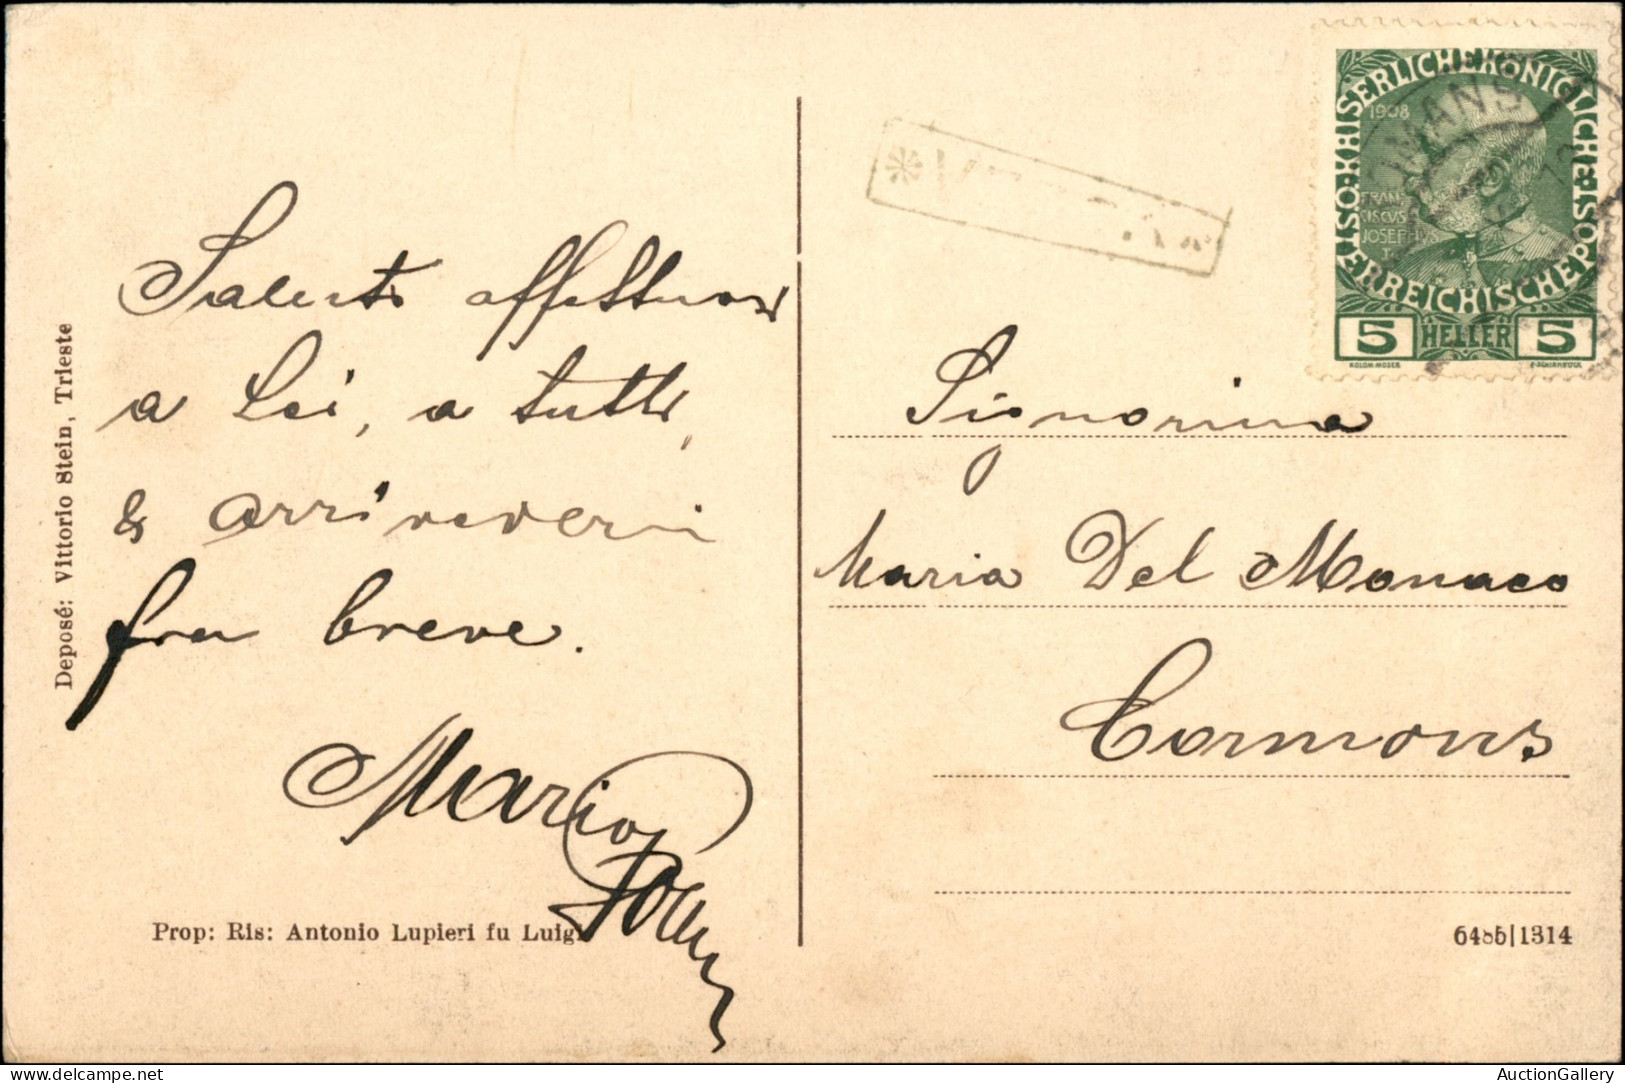 Saluti affettuosi
a Lei, a tutti,
& arrivederci
fra breve.
Mario
Deposé: Vittorio Stein, Trieste
Prop: Ris: Antonio Lupieri fu Luigi
KAISERLICHE KÖNIGLICHE
ÖSTERREICHISCHE POST
1908
FRAN
CISCVS
JOSEPHVS
I
5 HELLER 5
KOLOM. MOSER
F. SCHIRNBÖCK
Signorina
Maria Del Monaco
Cormons
1314
AuctionGallery